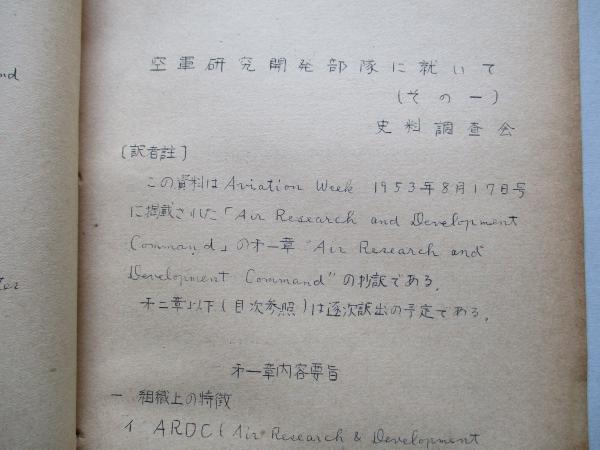 空軍研究開発部隊に就いて
(その一)
史料調査会
[訳者註]
この資料はAviation Week 1953年8月17日号
に掲載された「Air Research and Development
Command」の才一章“Air Research and
Development Command”の抄訳である。
才二章以下(目次参照)は逐次訳出の予定である。
才一章内容要旨
一 組織上の特徴
イ ARDC(Air Research & Development